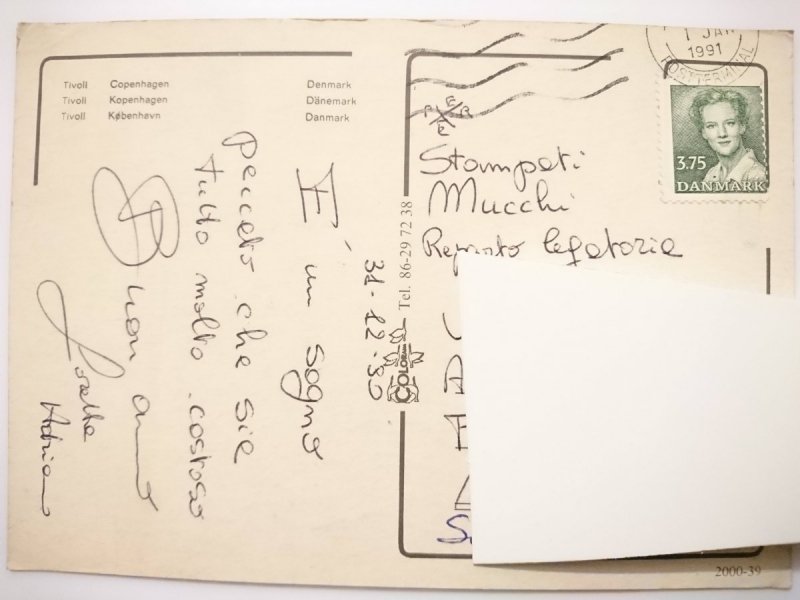 Tivoli Copenhagen Denmark
Tivoli Kopenhagen Dänemark
Tivoli København Danmark
31-12-90
È un sogno
peccato che sia
tutto molto costoso
Buon anno
Loretta
Adriano
Tel. 86-29 72 38
COLORAMA
1 JAN
1991
POSTTERMINAL
3.75
DANMARK
PIER
Stampati
Mucchi
Reparto legatoria
2000-39